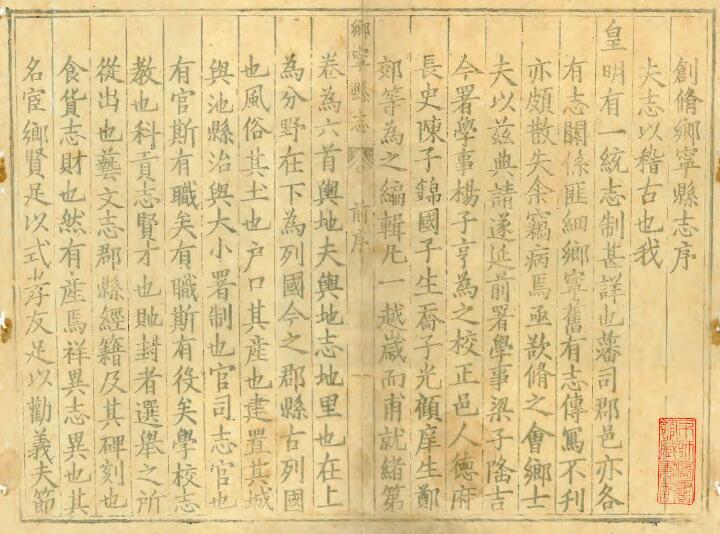 創脩鄉寧縣志序
夫志以稽古也我
皇明有一統志制甚詳也藩司郡邑亦各
有志關係匪細鄉寧舊有志傳寫不利
亦頗散失余竊病焉亟欲脩之會鄉士
夫以茲典請遂延前署學事梁子隆吉
今署學事楊子亨為之校正邑人德府
長史陳子錦國子生喬子光顧庠生鄭
郊等為之編輯凡一越歲而甫就緒第
鄉寧縣志
前序
一
卷為六首輿地夫輿地志地里也在上
為分野在下為列國今之郡縣古列國
也風俗其土也户口其產也建置其城
與池縣治與大小署制也官司志官也
有官斯有職矣有職斯有役矣學校志
教也科貢志賢才也貤封者選舉之所
從出也藝文志郡縣經籍及其碑刻也
食貨志財也然有產焉祥異志異也其
名宦鄉賢足以式孝友足以勸義夫節